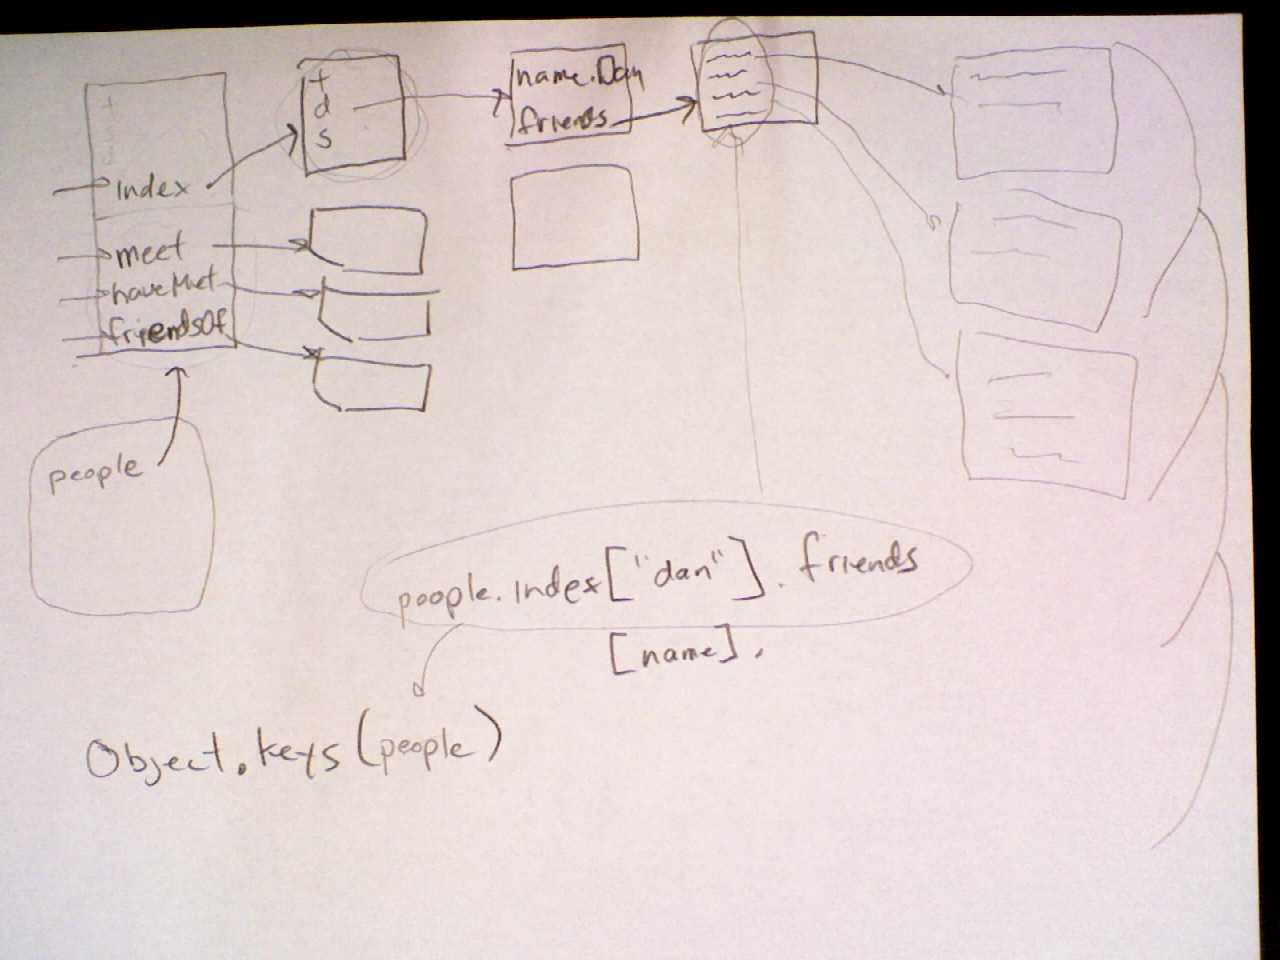 Index
meet
haveMet
friendsOf
t
d
s
name: Dan
friends
people
people.index["dan"].friends
[name].
Object.keys(people)